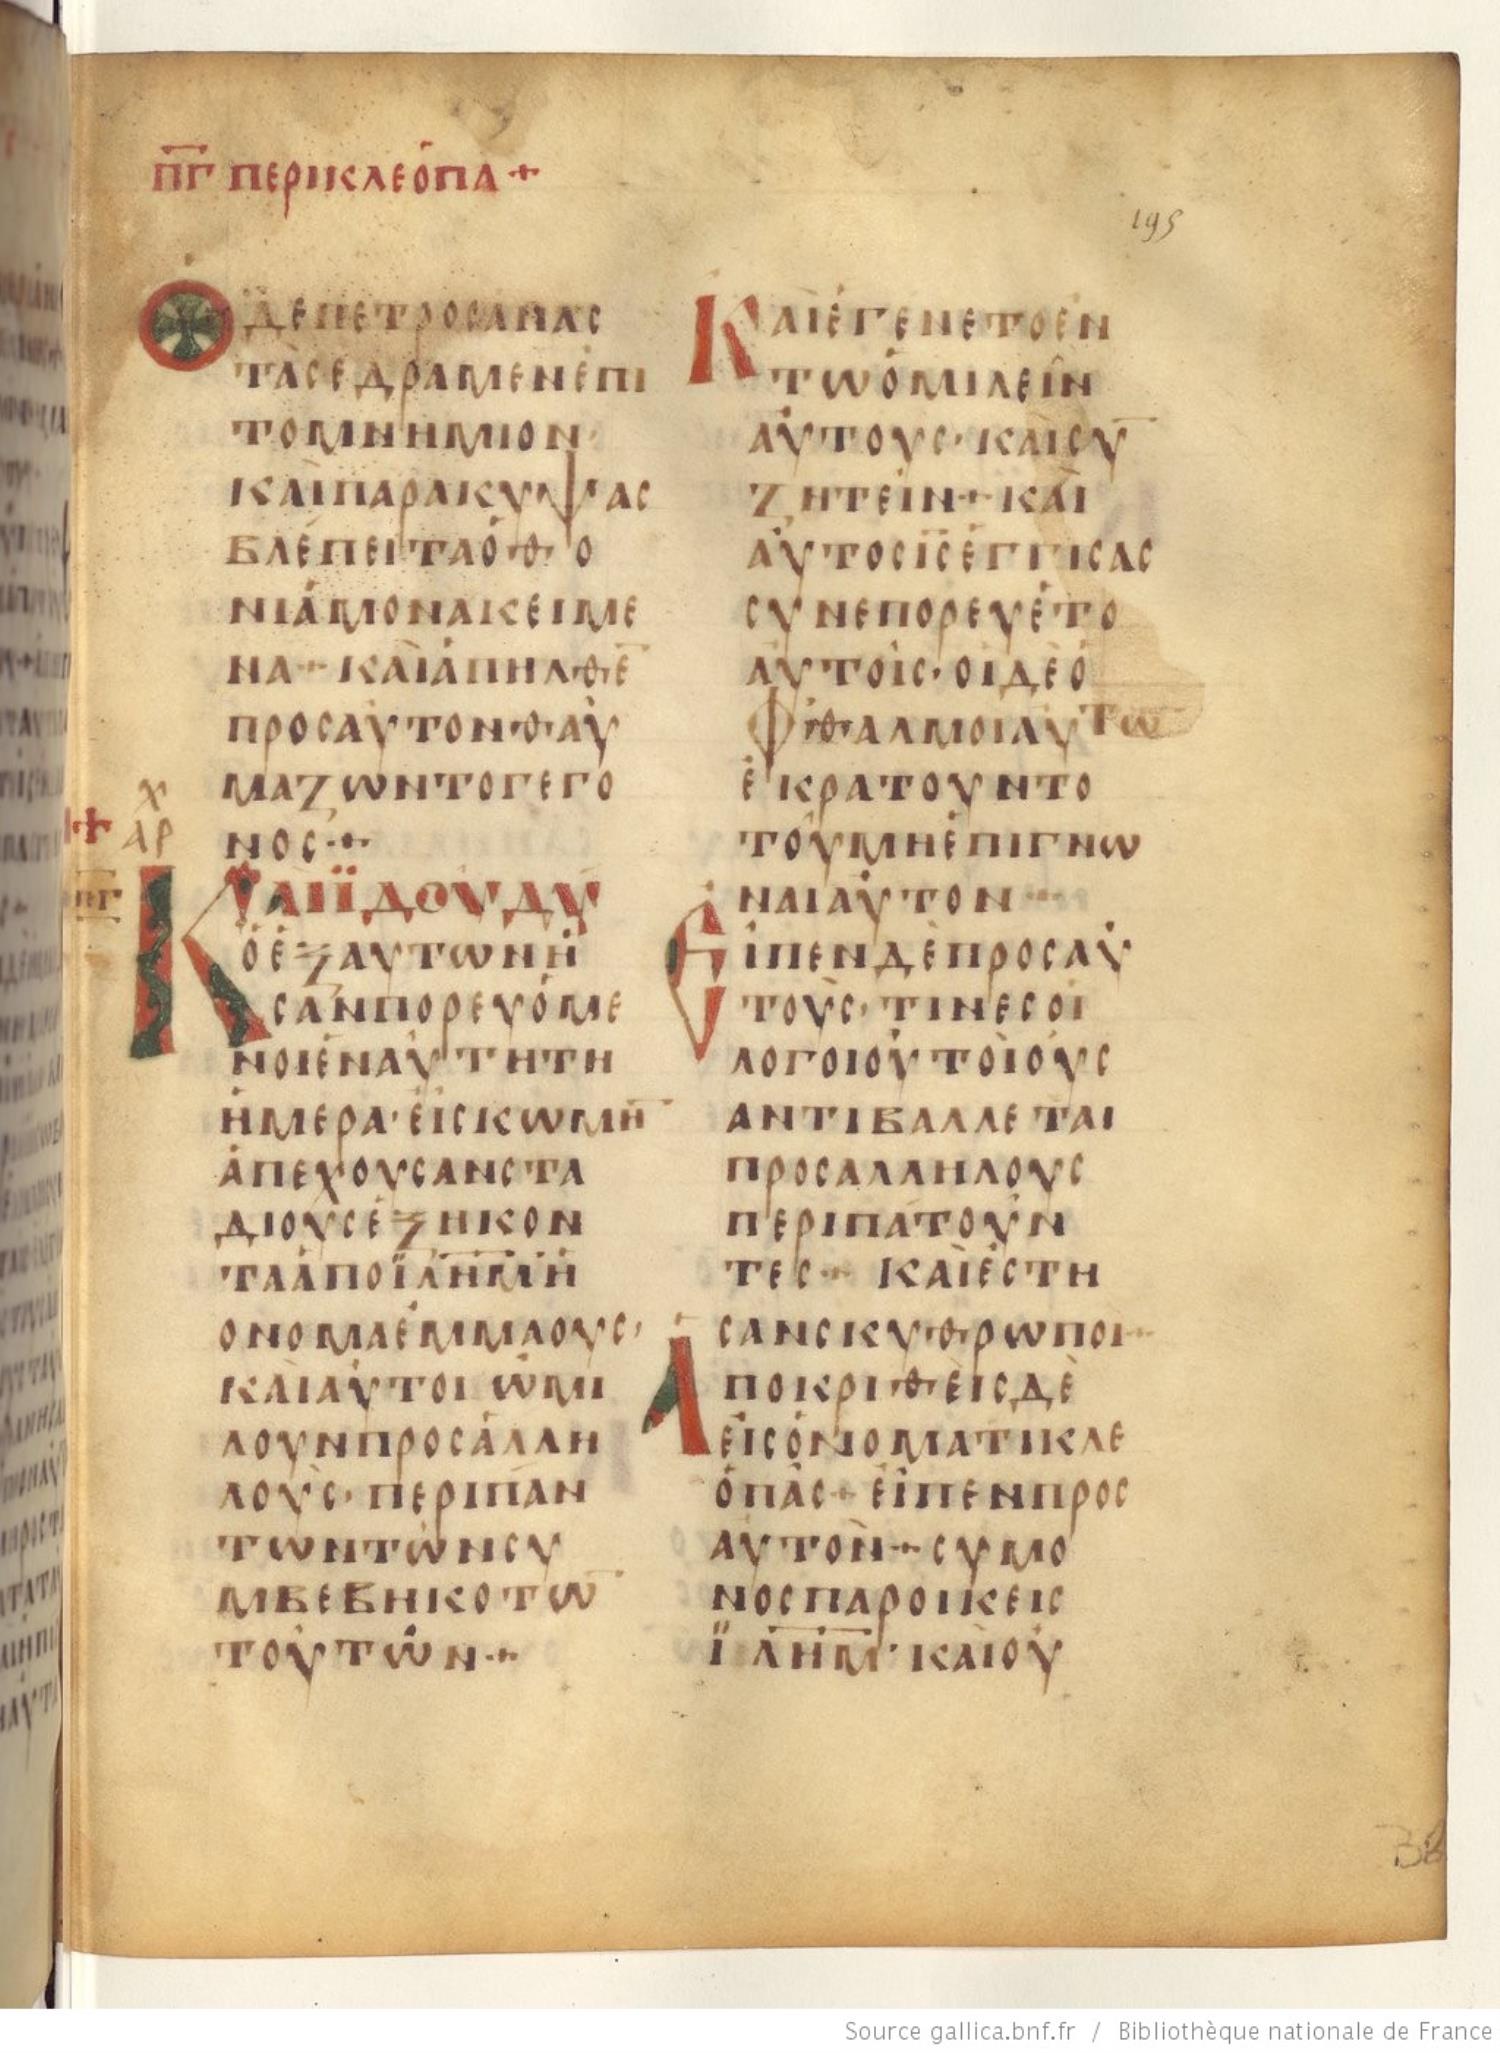 ΠΓ ΠΕΡΙΚΛΕΌΠΑ+
195
ΟΔΕΠΕΤΡΟΣΑΝΑΣ
ΤΑΣΕΔΡΑΜΕΝΕΠΙ
ΤΟΜΝΗΜΙΟΝ·
ΚΑΙΠΑΡΑΚΥΨΑΣ
ΒΛΕΠΕΙΤΑΟΘΟ
ΝΙΑΜΟΝΑΚΕΙΜΕ
ΝΑ+ΚΑΙΑΠΗΛΘΕ̅
ΠΡΟΣΑΥΤΟΝΘΑΥ
ΜΑΖΩΝΤΟΓΕΓΟ
ΝΟΣ·+
Χ
ΑΡ
ΠΓ
ΚΑΙΪΔΟΥΔΥ
ΟΕΞΑΥΤΩΝΗ
ΣΑΝΠΟΡΕΥΟΜΕ
ΝΟΙΕΝΑΥΤΗΤΗ
ΗΜΕΡΑ·ΕΙΣΚΩΜΗ̅
ΑΠΕΧΟΥΣΑΝΣΤΑ
ΔΙΟΥΣΕΞΗΚΟΝ
ΤΑΑΠΟΪΛΗΜΗ
ΟΝΟΜΑΕΜΜΑΟΥΣ·
ΚΑΙΑΥΤΟΙΩΜΙ
ΛΟΥΝΠΡΟΣΑΛΛΗ
ΛΟΥΣ·ΠΕΡΙΠΑΝ
ΤΩΝΤΩΝΣΥ
ΜΒΕΒΗΚΟΤΩ̅
ΤΟΥΤΩΝ·+
ΚΑΙΕΓΕΝΕΤΟΕΝ
ΤΩΟΜΙΛΕΙΝ
ΑΥΤΟΥΣ·ΚΑΙΣΥ̅
ΖΗΤΕΙΝ+ΚΑΙ
ΑΥΤΟΣΙ̅Σ̅ΕΓΓΙΣΑΣ
ΣΥΝΕΠΟΡΕΥΕΤΟ
ΑΥΤΟΙΣ·ΟΙΔΕΟ
ΦΘΑΛΜΟΙΑΥΤΩ̅
ΕΚΡΑΤΟΥΝΤΟ
ΤΟΥΜΗΕΠΙΓΝΩ
ΝΑΙΑΥΤΟΝ+
ΕΙΠΕΝΔΕΠΡΟΣΑΥ
ΤΟΥΣ·ΤΙΝΕΣΟΙ
ΛΟΓΟΙΟΥΤΟΙΟΥΣ
ΑΝΤΙΒΑΛΛΕΤΑΙ
ΠΡΟΣΑΛΛΗΛΟΥΣ
ΠΕΡΙΠΑΤΟΥΝ
ΤΕΣ+ ΚΑΙΕΣΤΗ
ΣΑΝΣΚΥΘΡΩΠΟΙ+
ΑΠΟΚΡΙΘΕΙΣΔΕ
ΕΙΣΟΝΟΜΑΤΙΚΛΕ
ΟΠΑΣ+ΕΙΠΕΝΠΡΟΣ
ΑΥΤΟΝ+ΣΥΜΟ
ΝΟΣΠΑΡΟΙΚΕΙΣ
ΪΛΗΜ·ΚΑΙΟΥ
Source gallica.bnf.fr / Bibliothèque nationale de France